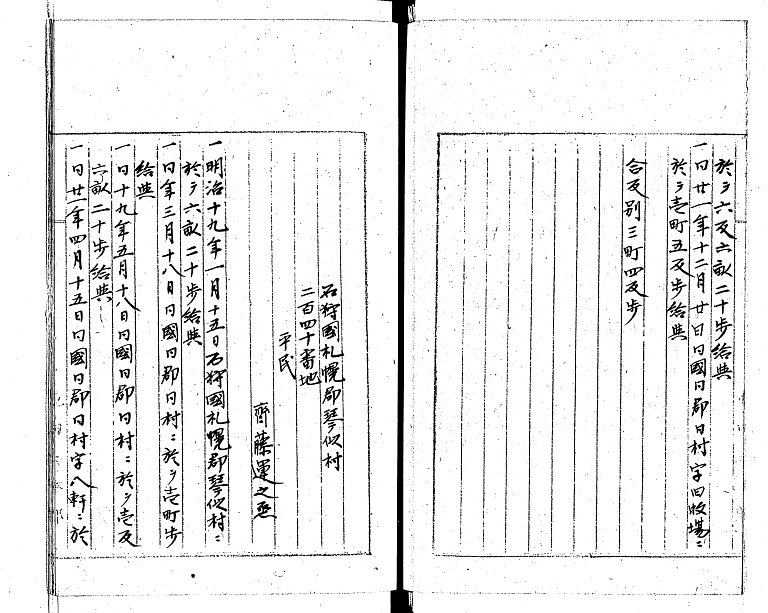 於テ六反六畝二十歩給與
一同廿一年十二月廿日同國同郡同村字旧牧場ニ
於テ壱町五反歩給與
合反別三町四反歩
石狩國札幌郡琴似村
二百四十番地
平民
齊藤運之丞
一明治十九年一月十五日石狩國札幌郡琴似村ニ
於テ六畝二十歩給與
一同年三月十八日同國同郡同村ニ於テ壱町歩
給與
一同十九年五月十八日同國同郡同村ニ於テ壱反
六畝二十歩給與
一同廿一年四月十五日同國同郡同村字八軒ニ於